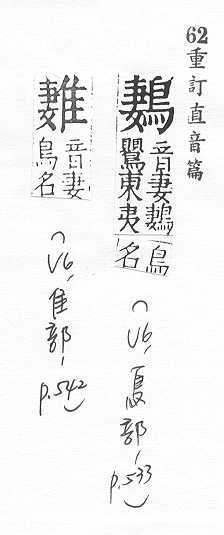 62重訂直音篇
鶈
音妻鶈
鸎東夷
鳥
名
(V6, 鳥部, p.533)
音妻
鳥名
(V6, 隹部, p.542)